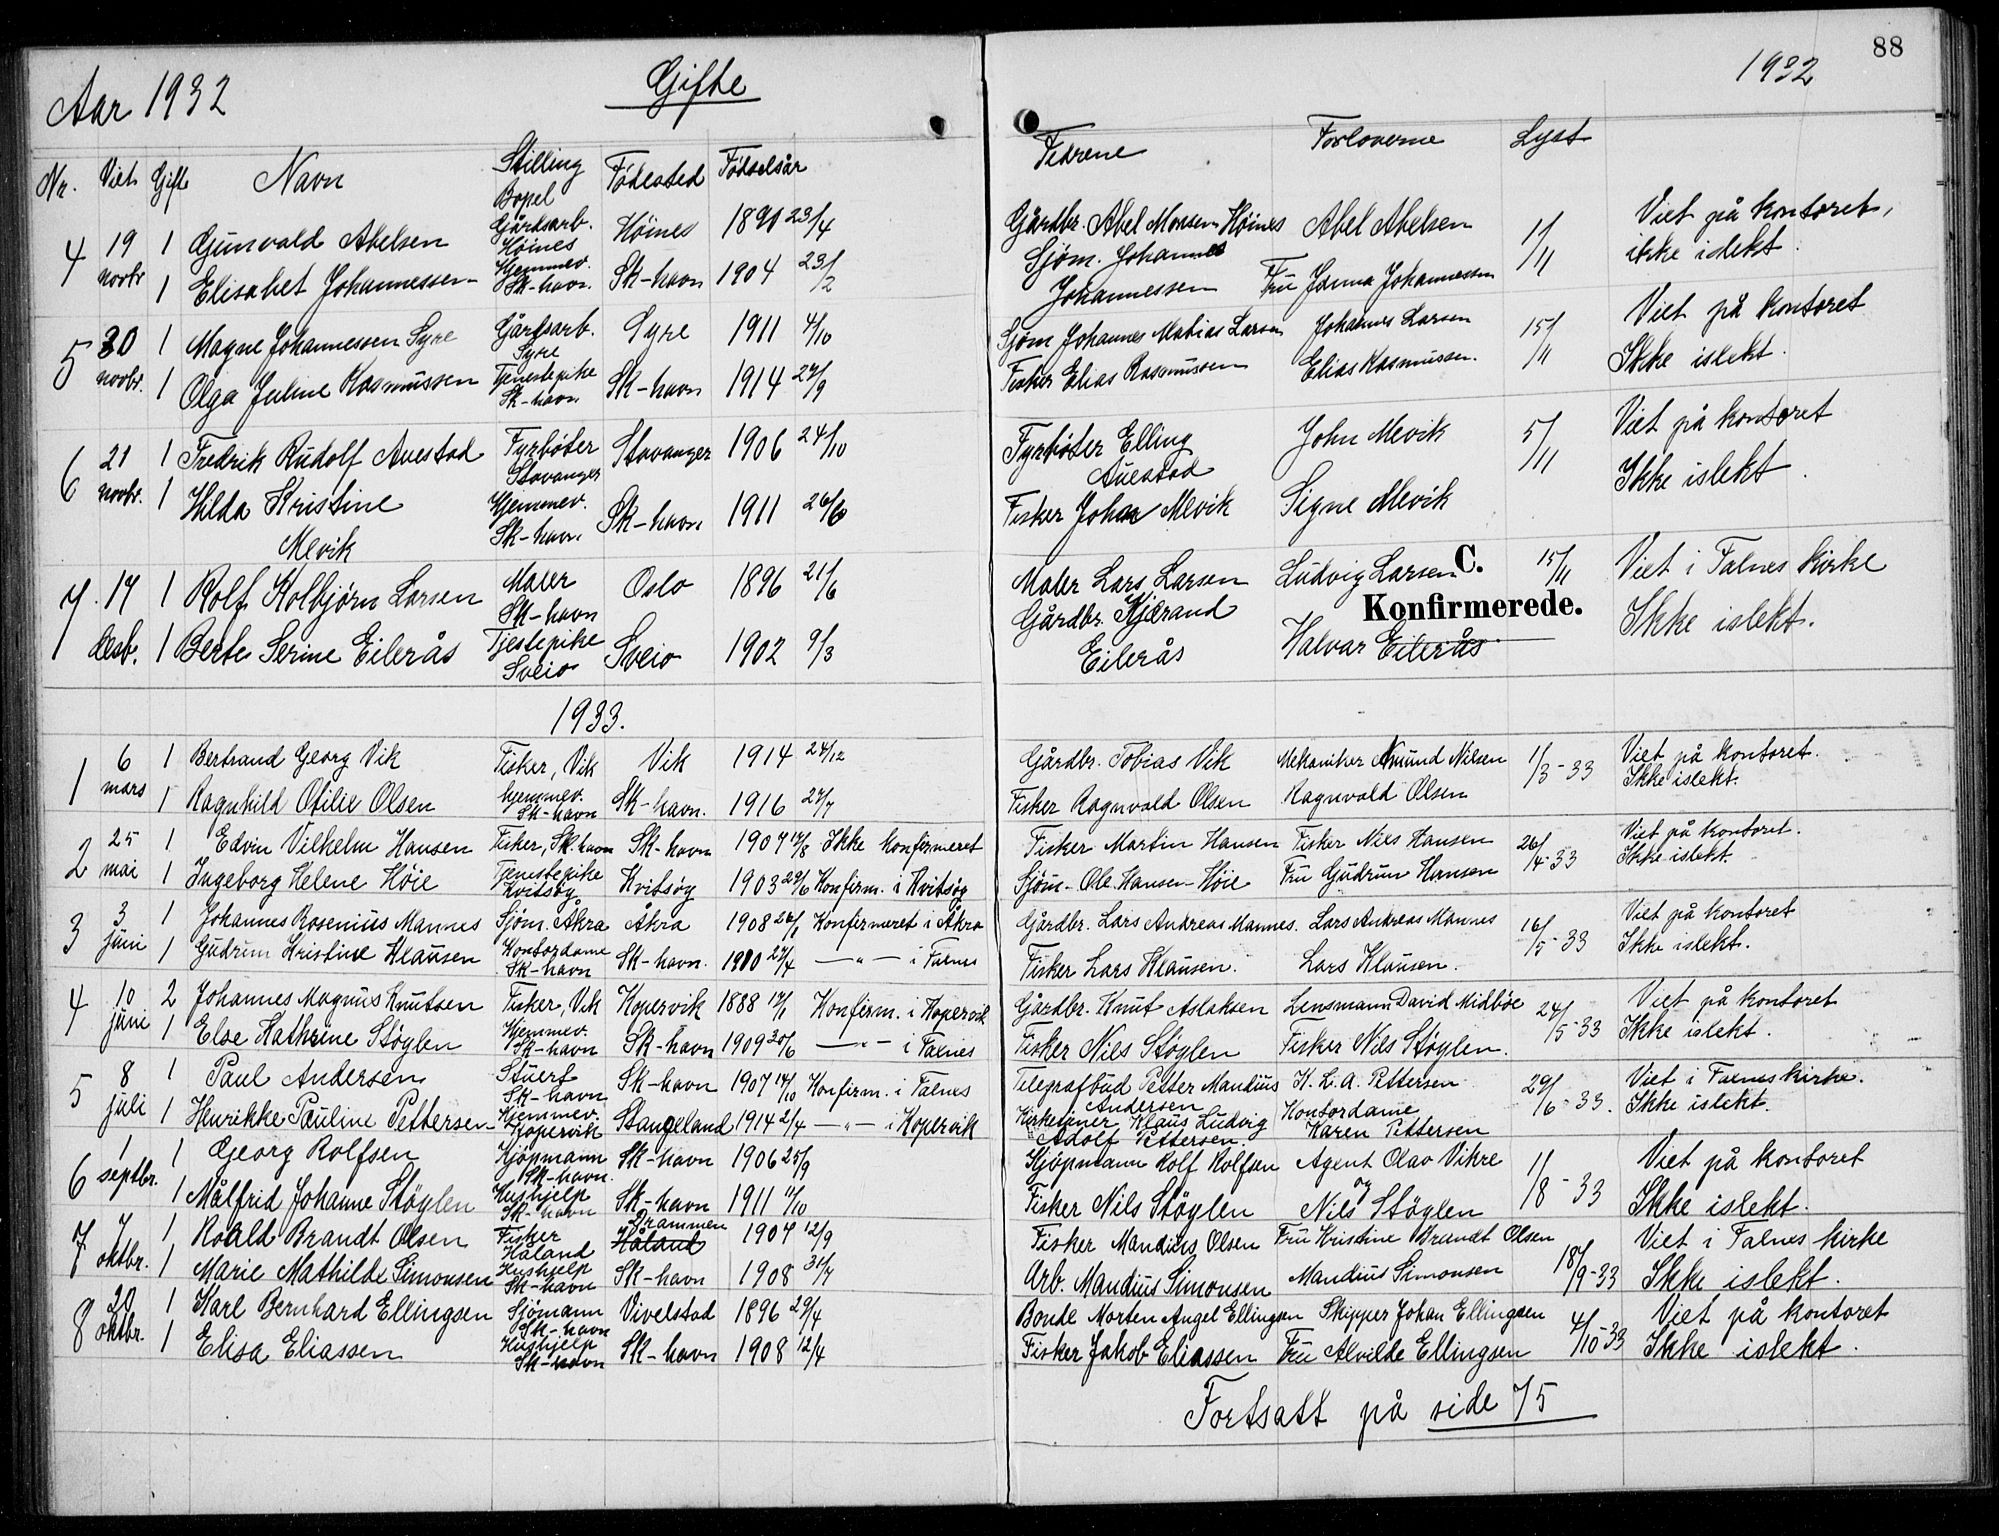 88
Aar 1932 Gifte 1932
Nr. Viet Gift Navn Stilling Bopel Fødested Fødselsår Fedrene Forloverne Lyst
4 19 novbr 1 Gunvald Abelsen Gårdsarb. Høines Høines 1890 23/4 Gårdbr. Abel Monsen Høines Abel Abelsen 1/11 Viet på kontoret,
1 Elisabet Johannessen Hjemmev. Sk-havn. Sk-havn 1904 23/2 Sjøm. Johannes Johannessen Fru Janna Johannessen ikke islekt.
5 30 novbr. 1 Magne Johannessen Syre Gårdsarb. Syre Syre 1911 4/10 Sjøm Johannes Matias Larsen Johannes Larsen 15/11 Viet på kontoret
1 Olga Juline Rasmussen Tjenestepike Sk-havn Sk-havn 1914 27/9 Fisker Elias Rasmussen Elias Rasmussen. Ikke islekt.
6 21 novbr. 1 Fredrik Rudolf Auestad Fyrbøter Stavanger Stavanger 1906 24/10 Fyrbøter Elling Auestad John Mevik 5/11 Viet på kontoret
1 Hilda Kristine Mevik Hjemmev. Sk-havn. Sk-havn 1911 26/6 Fisker Johan Mevik Signe Mevik Ikke islekt.
C.
Konfirmerede.
7 17 desb. 1 Rolf Kolbjørn Larsen Maler Sk-havn Oslo 1896 21/6 Maler Lars Larsen Ludvig Larsen 15/11 Viet i Falnes kirke
1 Berte Serine Eilerås Tjestepike Sveio Sveio 1902 9/3 Gårdbr. Kjærand Eilerås Halvar Eilerås Ikke islekt.
1933.
1 6 mars 1 Bertrand Georg Vik Fisker, Vik Vik 1914 24/12 Gårdbr. Tobias Vik Mekaniker Amund Nilsen 1/3-33 Viet på kontoret.
1 Ragnhild Otilie Olsen hjemmev. Sk-havn Sk-havn. 1916 27/7 Fisker Ragnvald Olsen Ragnvald Olsen Ikke islekt.
2 25 mai 1 Edvin Vilhelm Hansen Fisker, Sk-havn Sk-havn 1907 17/8 Ikke konfirmeret Fisker Martin Hansen Fisker Nils Hansen 26/4-33 Viet på kontoret.
1 Ingeborg Helene Høie Tjenestepike Kvitsøy Kvitsøy 1903 29/6 Konfirm. i Kvitsøy Sjøm. Ole Hansen Høie Fru Gudrun Hansen Ikke islekt.
3 3 juni 1 Johannes Rosenius Mannes Sjøm. Åkra Åkra 1908 26/1 Konfirmeret i Åkra Gårdbr. Lars Andreas Mannes. Lars Andreas Mannes 16/5-33 Viet på kontoret
1 Gudrun Kristine Klausen Kontordame Sk-havn Sk-havn. 1910 27/4 —"— i Falnes Fisker Lars Klausen. Lars Klausen. Ikke islekt.
4 10 juni 2 Johannes Magnus Knutsen Fisker, Vik Kopervik 1888 17/1 Konfirm. i Kopervik Gårdbr. Knut Aslaksen Lensmann David Midbøe 24/5-33 Viet på kontoret
1 Else Kathrine Støylen Hjemmev. Sk-havn Sk-havn 1909 30/6 —"— i Falnes Fisker Nils Støylen Fisker Nils Støylen. Ikke islekt.
5 8 juli 1 Paul Andersen Stuert Sk-havn Sk-havn 1907 14/10 Konfirm. i Falnes Telegrafbud Petter Mandius Andersen K. L. A. Pettersen 29/6-33. Viet i Falnes kirke.
1 Henrikke Pauline Pettersen Hjemmev. Kopervik Stangeland 1914 2/4 —"— i Kopervik Kirketjener Klaus Ludvig Adolf Pettersen. Kontordame Karen Pettersen Ikke islekt.
6 1 septbr. 1 Georg Rolfsen Kjøpmann Sk-havn. Sk-havn 1906 25/9 Kjøpmann Rolf Rolfsen Agent Olav Vikre og 1/8-33 Viet på kontoret
1 Målfrid Johanne Støylen Hushjelp Sk-havn Sk-havn 1911 11/10 Fisker Nils Støylen Nils Støylen Ikke islekt.
7 7 oktbr. 1 Roald Brandt Olsen Fisker Håland Drammen Håland 1904 12/9 Fisker Mandius Olsen Fru Kristine Brandt Olsen 18/9-33 Viet i Falnes kirke
1 Marie Mathilde Simonsen Hushjelp Sk-havn Sk-havn 1908 31/7 Arb. Mandius Simonsen Mandius Simonsen Ikke islekt.
8 20 oktbr. 1 Karl Bernhard Ellingsen Sjømann Sk-havn Vivelstad 1896 29/4 Bonde Morten Angel Ellingsen Skipper Johan Ellingsen 4/10-33 Viet på kontoret
1 Elisa Eliassen Hushjelp Sk-havn Sk-havn 1908 12/4 Fisker Jakob Eliassen Fru Alvilde Ellingsen Ikke islekt.
Fortsatt på side 75